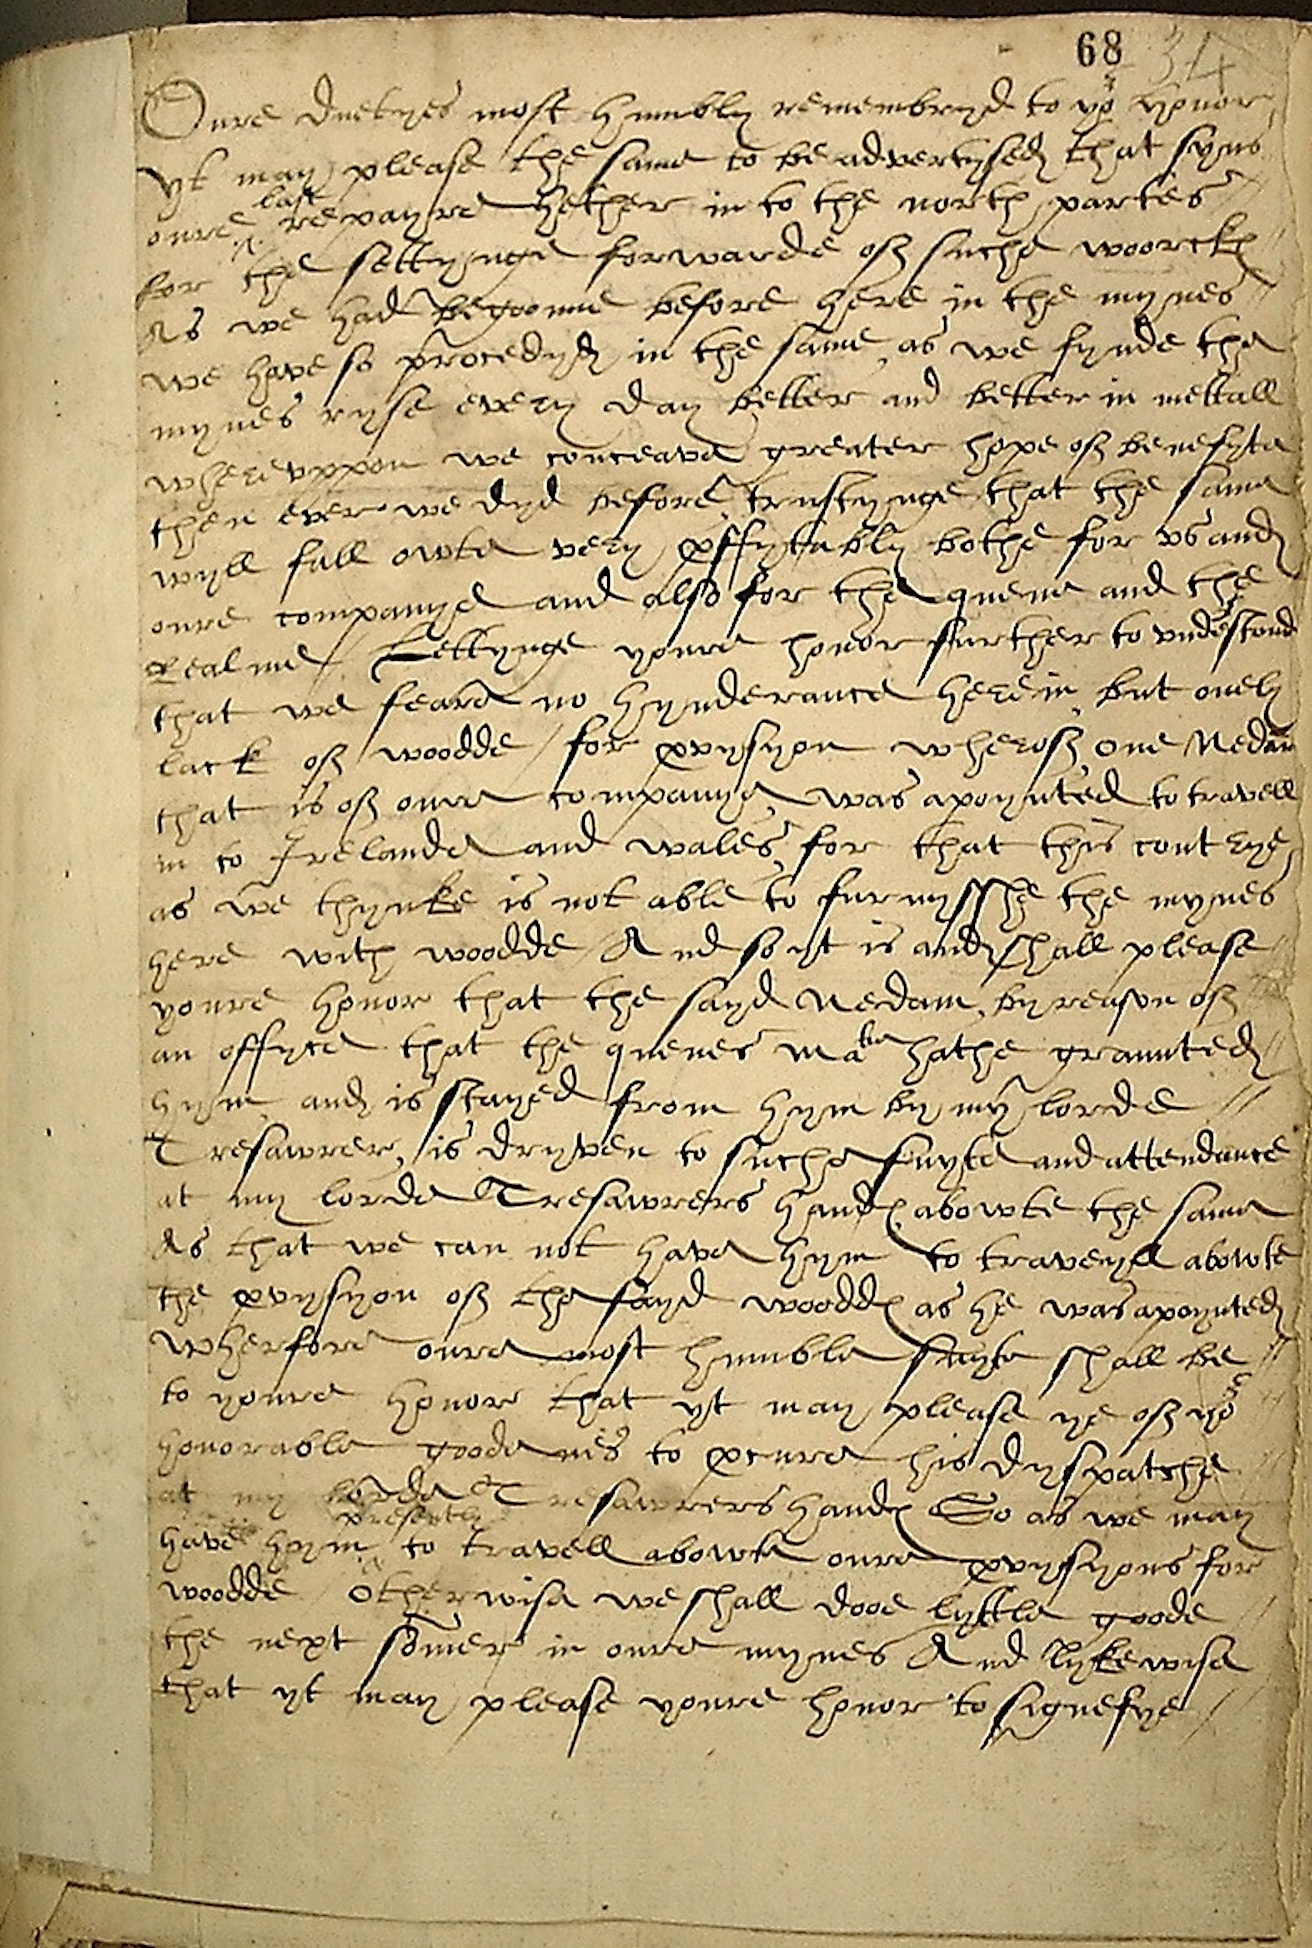 68 34
Oure duetyes most humbly remembryd to yor honor,
yt may please the same to be advertysed that syns
oure last repayre hether in to the north partes
for the settynge forwarde of suche woorckes
As we had begoonne before here in the mynes
we have so procedyd in the same, as we fynde the
mynes ryse every day better and better in mettall
wherevppon we conceave greater hope of benefyte
then ever we dyd before, trustynge that the same
wyll fall owte very pffytably bothe for vs and
oure companye and also for the quene and the
Realme / Lettynge youre honor further to vnderstond
that we feare no hynderance herein, but onely
lack of woodde / for pvysyon wherof, one Nedam
that is of oure companye, was apoynted to travell
in to Irelande and wales, for that this contrye,
as we thynke is not able to furnysshe the mynes
here with woodde / And so yt is and shall please
youre honor that the sayd Nedam, by reason of
an offyce that the quenes matie hathe graunted
hym, and is stayed from hym by my lorde
Tresawrer, is dryven to suche suyte and attendance
at my lorde Tresawrers handes abowte the same
As that we can not have hym to traveyll abowte
the pvysyon of the sayd wooddes as he was apoynted
wherfore oure most humble suyte shall be
to youre honor that yt may please ye of yor
honorable goodenes to pcure his dyspatche
at my lorde Tresawrers handes So as we may
have hym presently to travell abowte oure pvysyons for
woodde Otherwise we shall dooe lyttle goode
the next somer in oure mynes And lykewise
that yt may please youre honor to signefye /